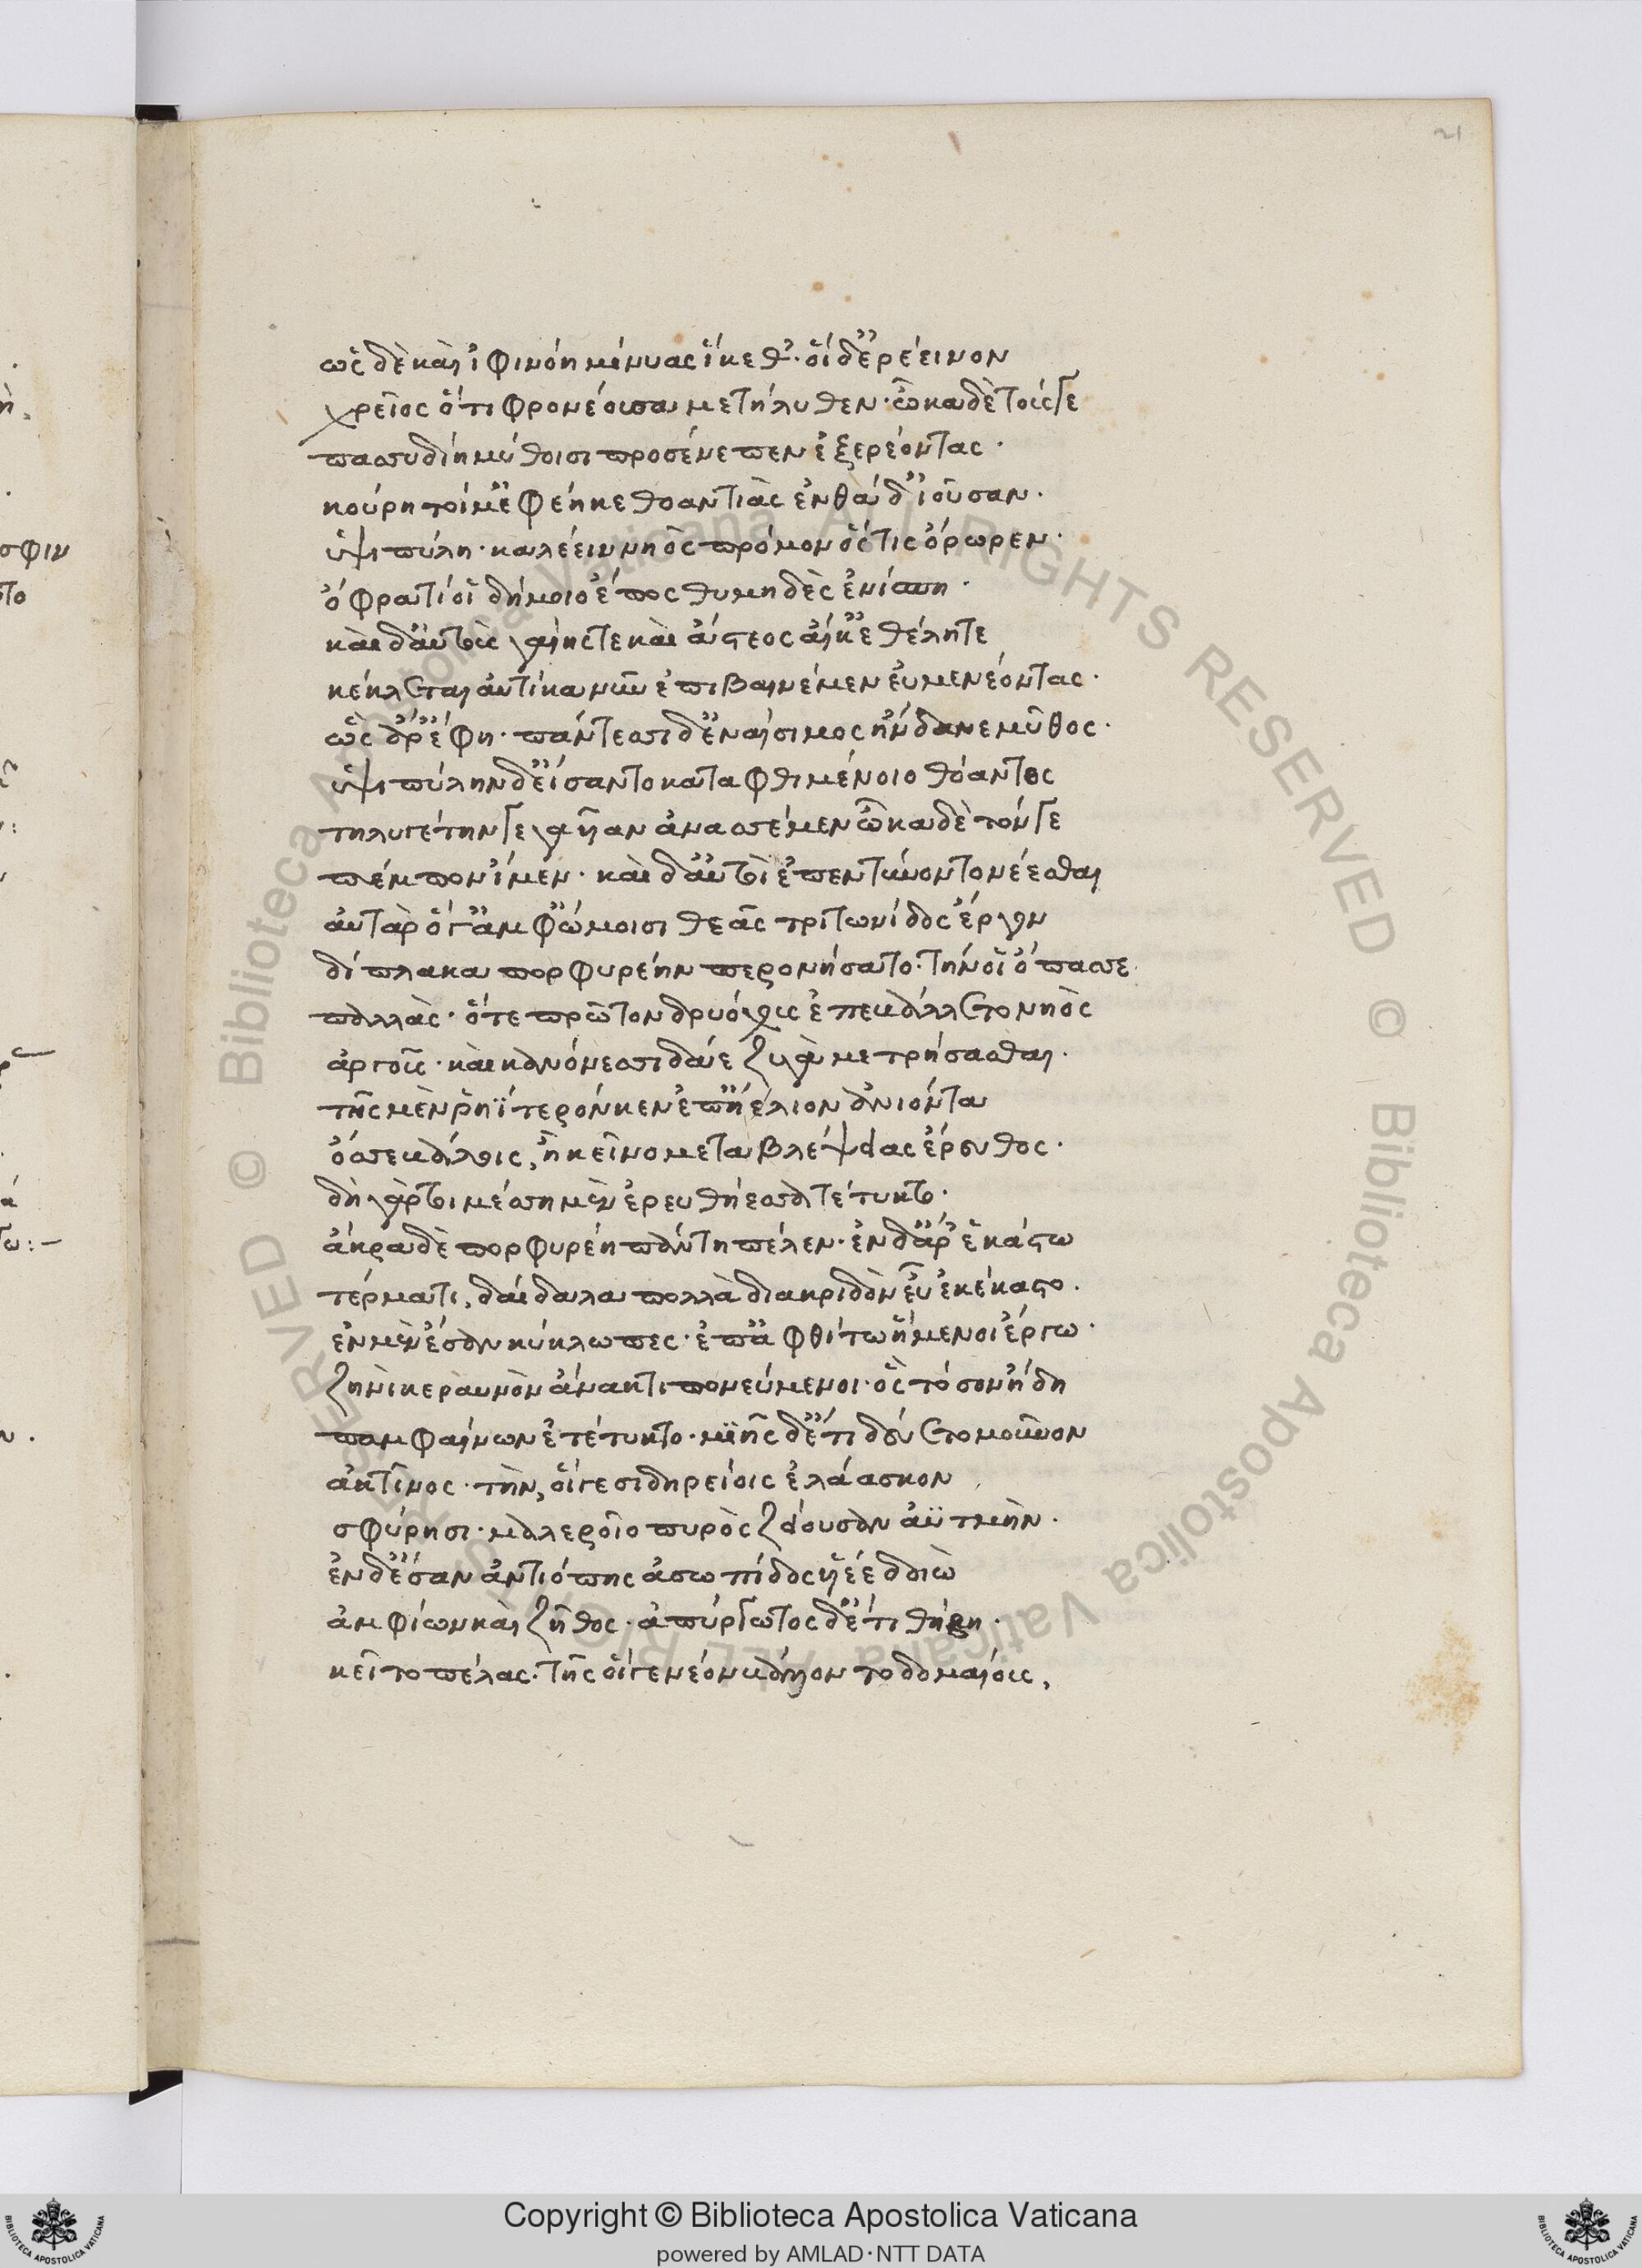 21
ὣς δὲ καὶ ἰφινόη μινύας ἵκεθ'· οἱ δ' ἐρέεινον
χρεῖος ὅ τι φρονέουσα μετήλυθεν· ὦκα δὲ τούσγε
πασσυδίη μύθοισι προσένεπεν ἐξερέοντας·
κούρη τοί μ' ἐφέηκε θοαντιὰς ἐνθάδ' ἰοῦσαν·
ὑψιπύλη· καλέειν νηὸς πρόμον ὅστις ὄρωρεν·
ὄφρα τί οἱ δήμοιο ἔπος θυμηδὲς ἐνίσπη·
καὶ δ' αὐτοὺς γαίης τε καὶ ἄστεος αἴ κ' ἐθέλητε
κέκλεται αὐτίκα νῦν ἐπιβαινέμεν εὐμενέοντας·
ὣς ἄρ' ἔφη· πάντεσσι δ' ἐναίσιμος ἥνδανε μῦθος·
ὑψιπύλην δ' εἴσαντο καταφθιμένοιο θόαντος
τηλυγέτην γεγαῆαν ἀνασσέμεν ὦκα δὲ τόνγε
πέμπον ἴμεν· καὶ δ' αὐτοὶ ἐπεντύνοντο νέεσθαι
αὐτὰρ ὅγ' ἀμφ' ὤμοισι θεᾶς τριτωνίδος ἔργον
δίπλακα πορφυρέην περονήσατο· τήν οἱ ὄπασσε
παλλὰς· ὅτε πρῶτον δρυόχους ἐπεβάλλετο νηὸς
ἀργοῦς· καὶ κανόνεσσι δάε ζυγὰ μετρήσασθαι·
τῆς μὲν ῥηΐτερόν κεν ἐπ' ἠέλιον ἀνιόντα
ὄσσε βάλοις, ἢ κεῖνο μεταβλέψαας ἔρευθος·
δὴ γάρ τοι μέσση μὲν ἐρευθήεσσα τέτυκτο·
ἄκρα δὲ πορφυρέη πάντη πέλεν· ἐν δ' ἄρ' ἑκάστω
τέρματι, δαίδαλα πολλὰ διακριδὸν εὖ ἐκέκαστο·
ἐν μὲν ἔσαν κύκλωπες· ἐπ' ἀφθίτω ἥμενοι ἔργω·
ζηνὶ κεραυνὸν ἄνακτι πονεύμενοι· ὃς τόσον ἤδη
παμφαίνων ἐτέτυκτο· μιῆς δ' ἔτι δεύετο μοῦνον
ἀκτῖνος· τὴν, οἵγε σιδηρείοις ἐλάασκον
σφύρησι· μαλεροῖο πυρὸς ζάουσαν ἀϋτμήν·
ἐν δ' ἔσαν ἀντιόπης ἀσωπίδος υἱέε δοιὼ
ἀμφίων καὶ ζῆθος· ἀπύργωτος δ' ἔτι θήβη·
κεῖτο πέλας· τῆς οἵγε νέον βάλλοντο δομαίους,
Copyright © Biblioteca Apostolica Vaticana
powered by AMLAD·NTT DATA